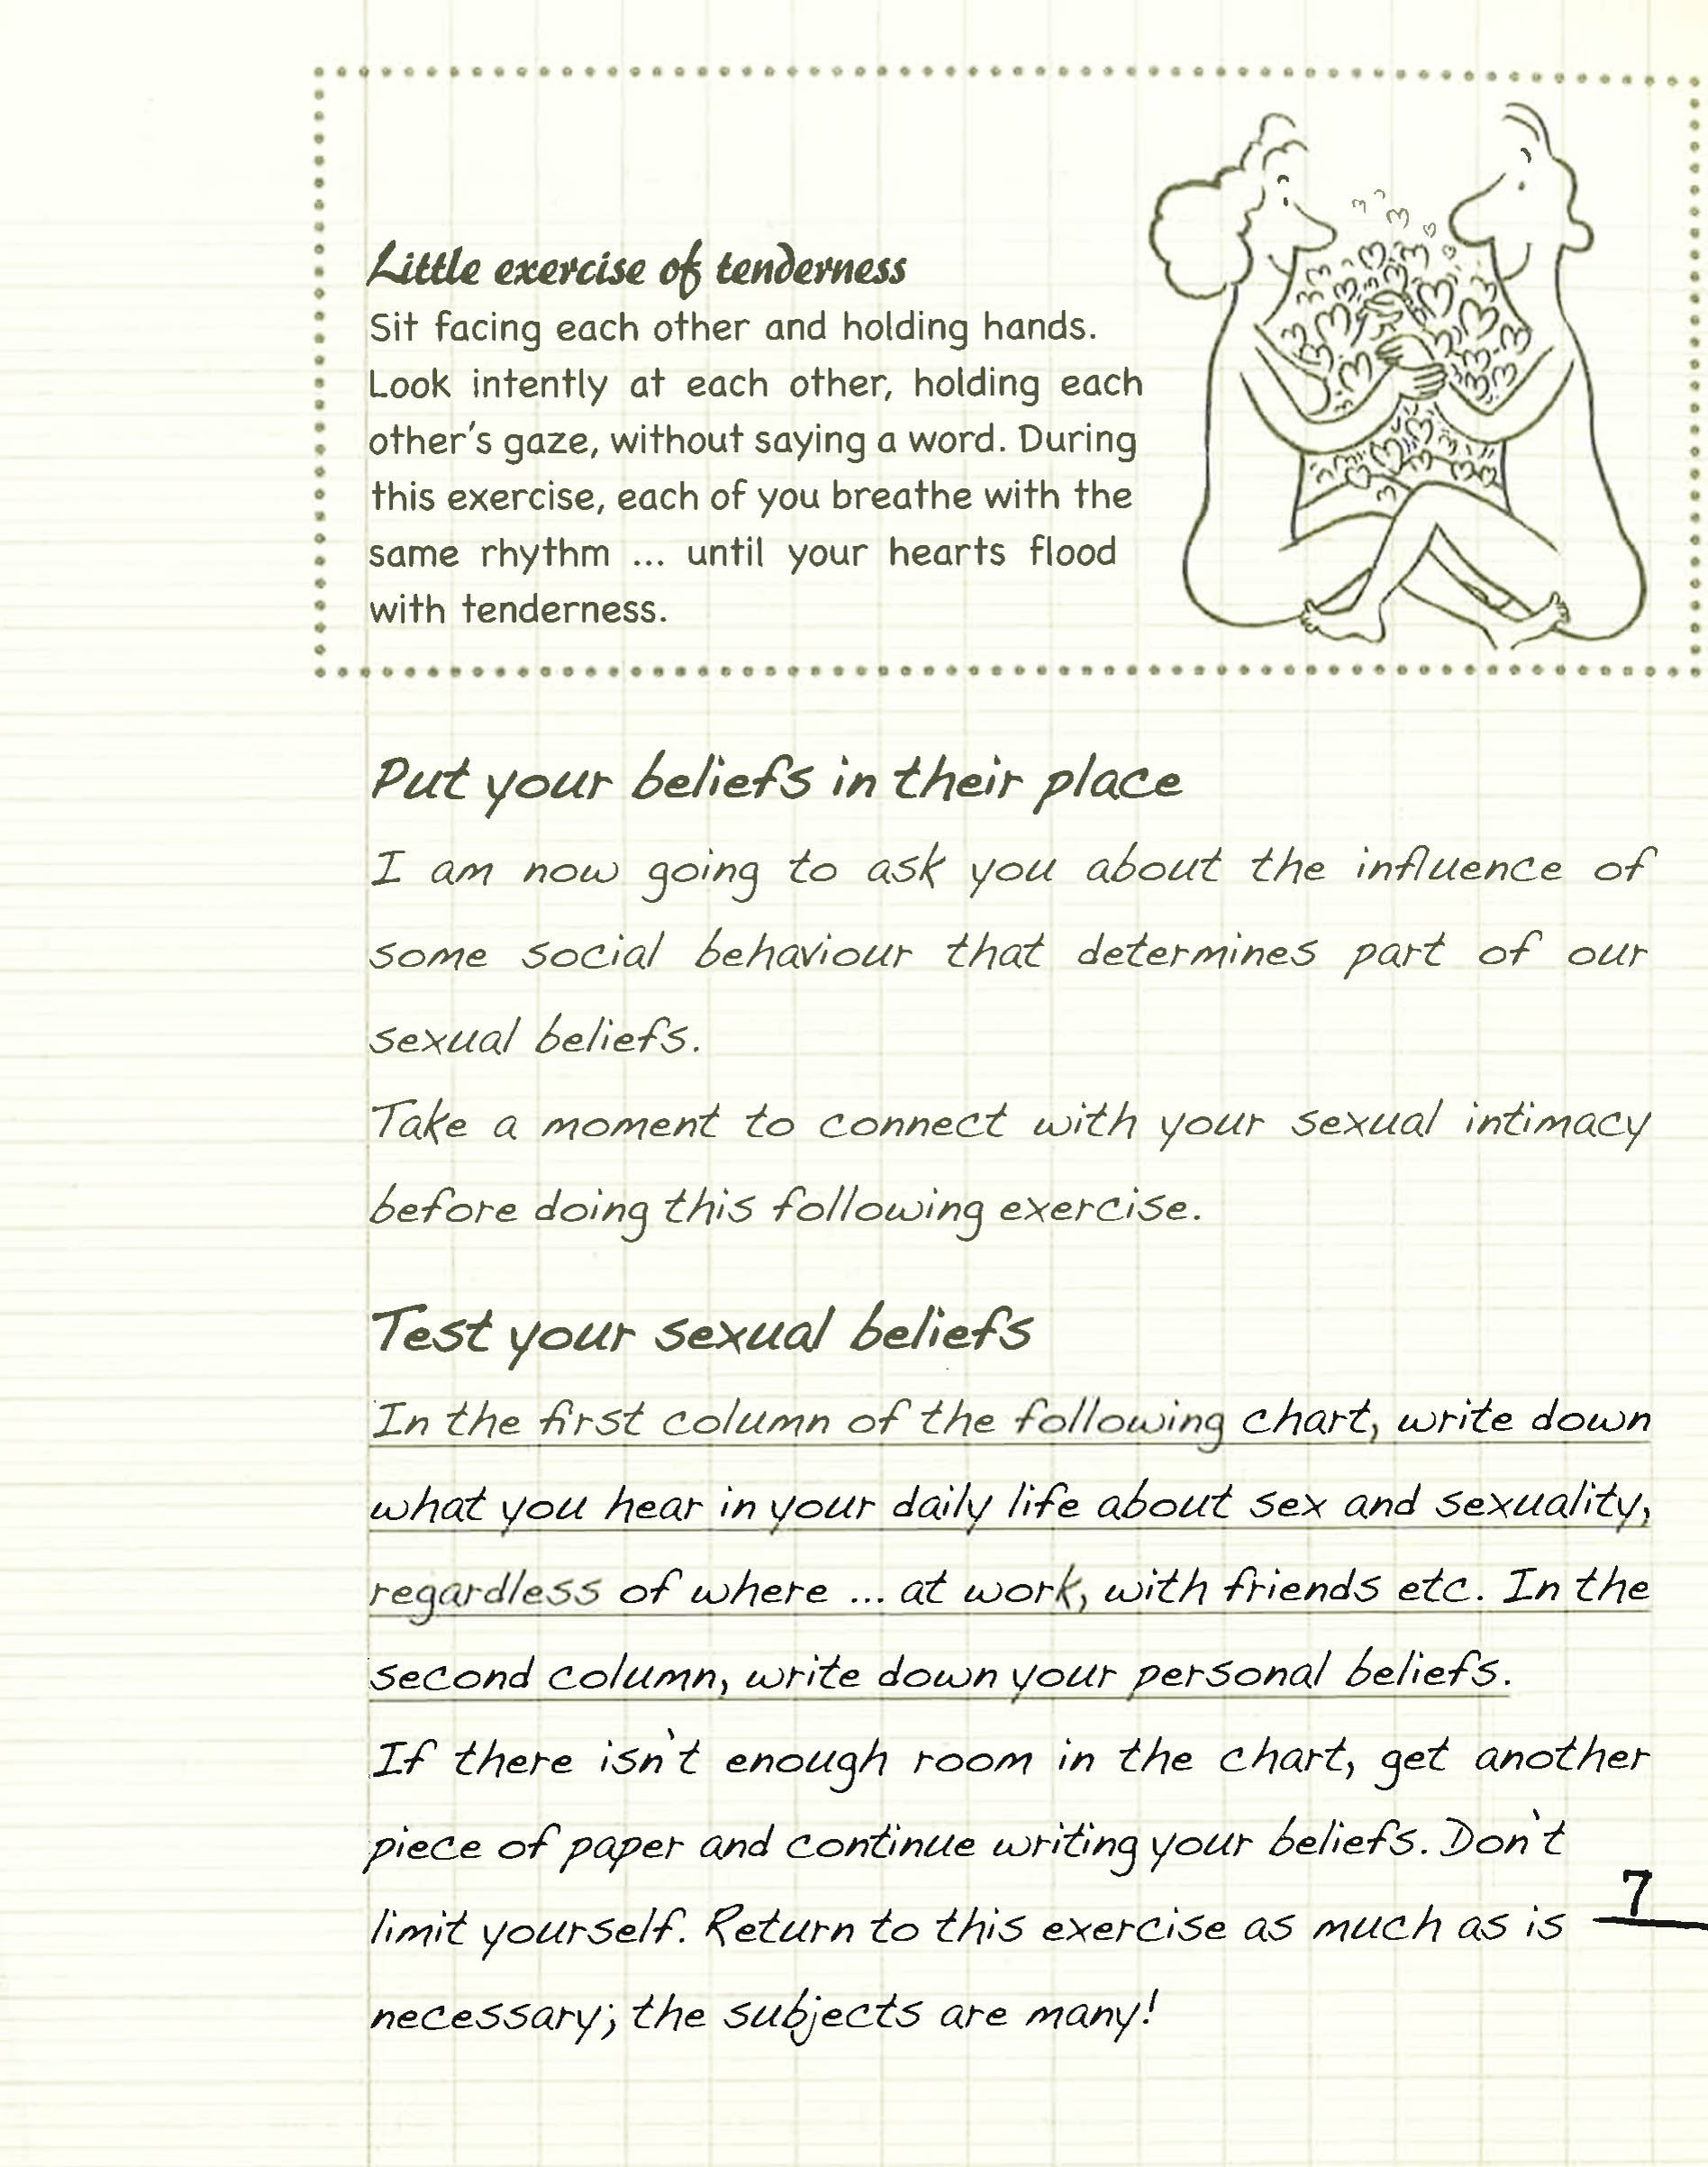 Little exercise of tenderness
Sit facing each other and holding hands.
Look intently at each other, holding each
other's gaze, without saying a word. During
this exercise, each of you breathe with the
same rhythm ... until your hearts flood
with tenderness.
Put your beliefs in their place
I am now going to ask you about the influence of
some social behaviour that determines part of our
sexual beliefs.
Take a moment to connect with your sexual intimacy
before doing this following exercise.
Test your sexual beliefs
In the first column of the following chart, write down
what you hear in your daily life about sex and sexuality,
regardless of where ... at work, with friends etc. In the
second column, write down your personal beliefs.
If there isn't enough room in the chart, get another
piece of paper and continue writing your beliefs. Don't
limit yourself. Return to this exercise as much as is
necessary; the subjects are many!
7